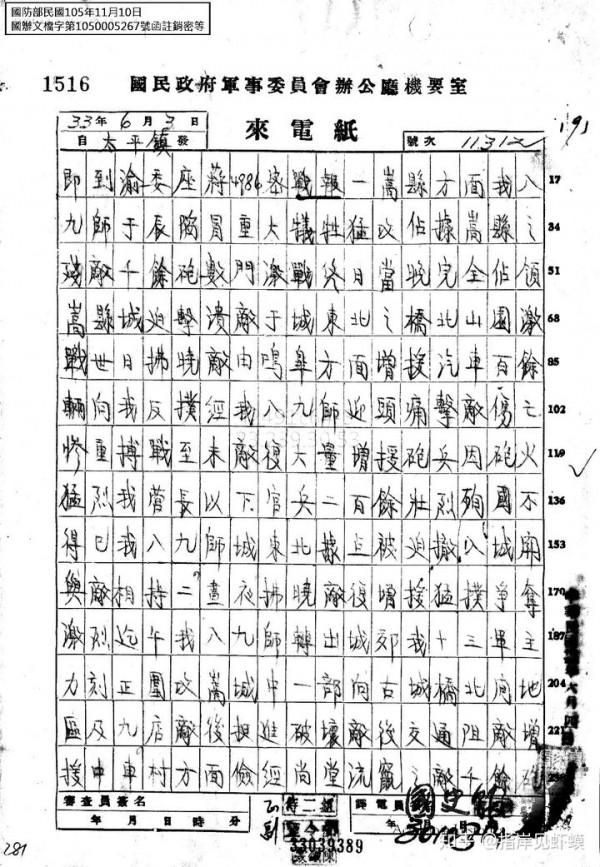 國防部民國105年11月10日
國辦文檔字第1050005267號函註銷密等
1516 國民政府軍事委員會辦公廳機要室
33年6月3日
自太平鎮發
來電紙
號次
191
即到渝委座蔣4986密戰報一嵩縣方面我八 17
九師于辰陷冒重大犧牲猛攻佔據嵩縣之 34
殘敵千餘砲數門激戰終日當晚完全佔領 51
嵩縣城迫擊潰敵于城東北之橋北山圍激 68
戰世日拂曉敵由鳴皋方面增援汽車百餘 85
輛向我反撲經我八九師迎頭痛擊敵傷亡 102
慘重搏戰至未敵復大量增援砲兵因砲火 119
猛烈我營長以下官兵二百餘壯烈殉國不 136
得已我八九師城東北據点被迫撤入城廂 153
與敵相持二晝夜拂曉敵復增援猛撲爭奪 170
激烈迄午我八九師轉出城郊我十三軍主 187
力刻正圍攻嵩城中一部向古城橋北間地 204
區及九店敵後挺進破壞敵後交通阻敵增 221
援中車村方面儉經尚堂流竄之敵千餘砲
審查員簽名
年 月 日 時 分
譯電員
國史館
33039389
281
知乎 @指岸见虾蟆